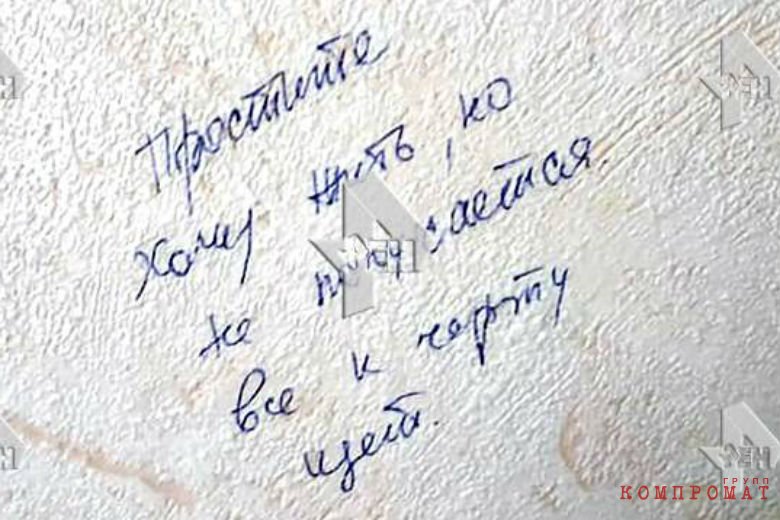 Простите
хочу жить, но
не получается.
все к черту
идет.
РЕН
РЕН
РЕН
РЕН
РЕН
ГРУПП
КОМПРОМАТ